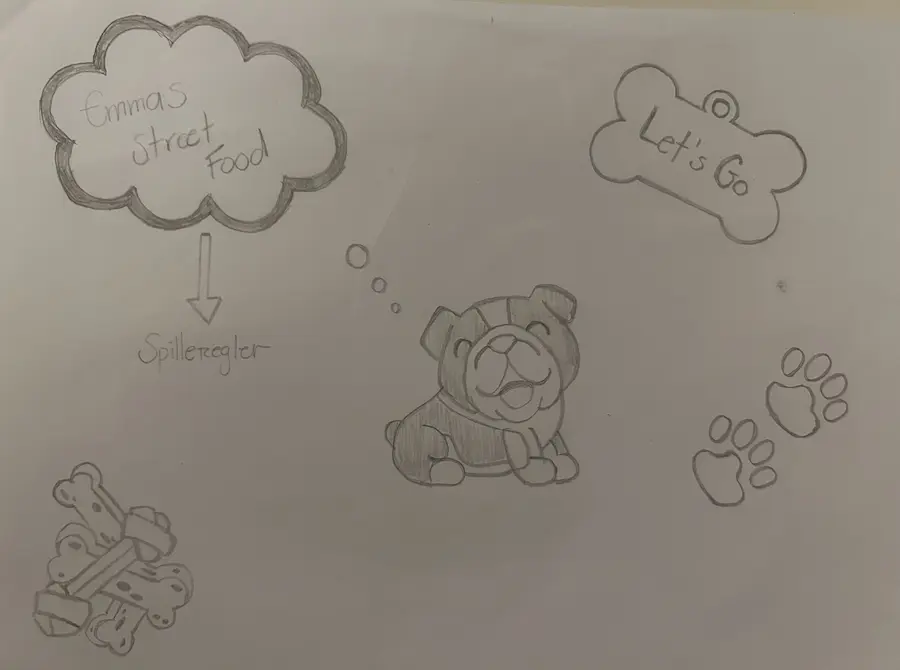 Emmas
Street
Food
Let's Go
Spilleregler